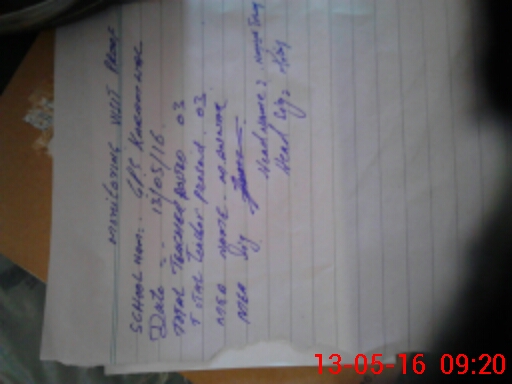 MONITORING VISIT PROOF
SCHOOL NAME: GPS
Date :- 13/05/16
TOTAL TEACHER POSTED 03
TOTAL Teacher PRESENT. 03
MEA NAME-
MEA Sig
Head Name:
Head Sig:
13-05-16 09:20